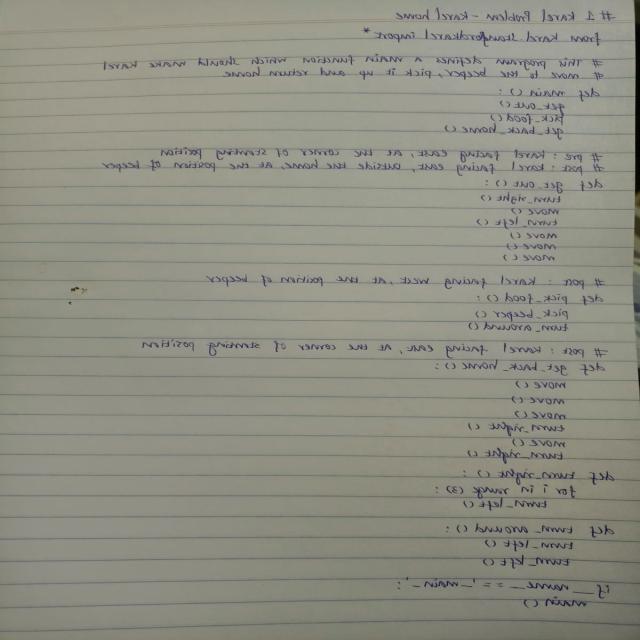 # 1 Karel Problem - Karel home
from karel.stanfordkarel import *
# This program defines a main function which should make karel
# move to the beeper, pick it up and return home
def main () :
get_out ()
pick_food ()
get_back_home ()
# pre : Karel facing east, at the corner of starting position
# post : Karel facing east, outside the home, at the position of beeper
def get_out () :
turn_right ()
move ()
turn_left ()
move ()
move ()
move ()
# post : Karel facing west, at the position of beeper
def pick_food () :
pick_beeper ()
turn_around ()
# post : Karel facing east, at the corner of starting position
def get_back_home () :
move ()
move ()
move ()
turn_right ()
move ()
turn_right ()
def turn_right () :
for i in range (3) :
turn_left ()
def turn_around () :
turn_left ()
turn_left ()
if __name__ == '__main__' :
main ()